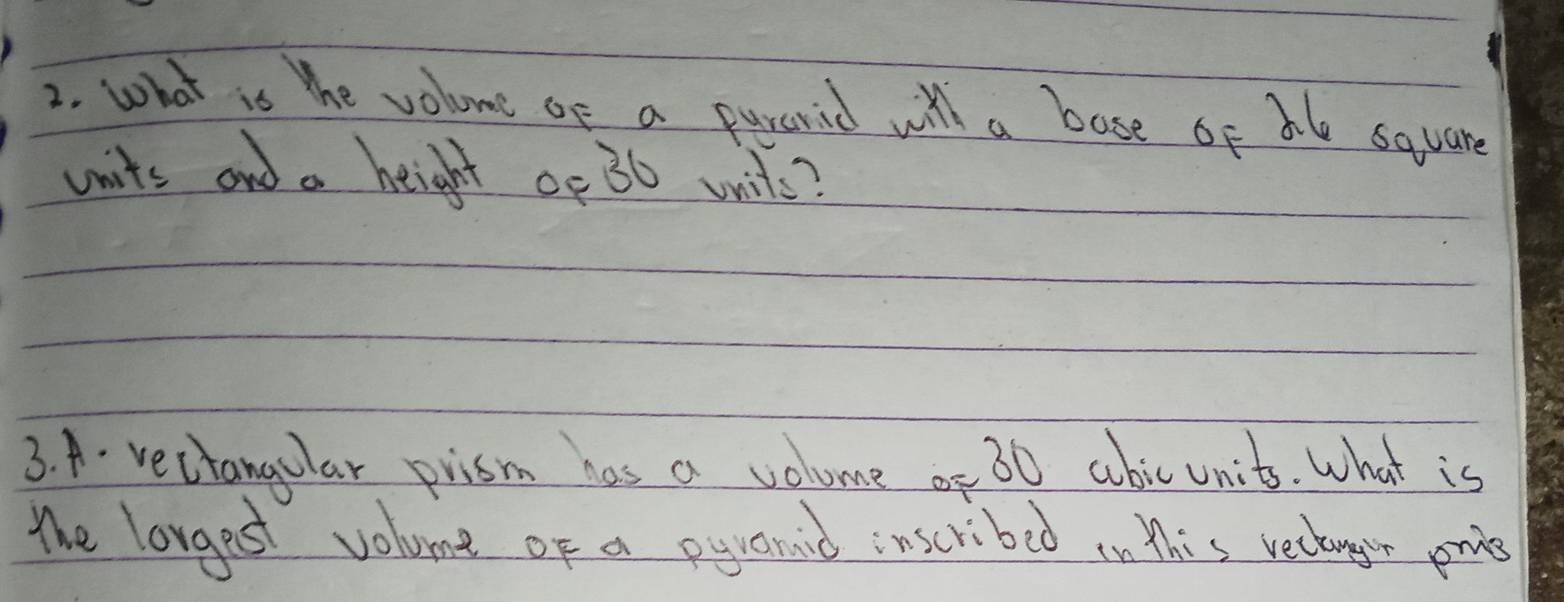 2. What is the volume of a pyramid with a base of square
units and a height of 30 units?
3. A. rectangular prism has a volume of 30 cubic units. What is
the largest volume of a pyramid inscribed in this